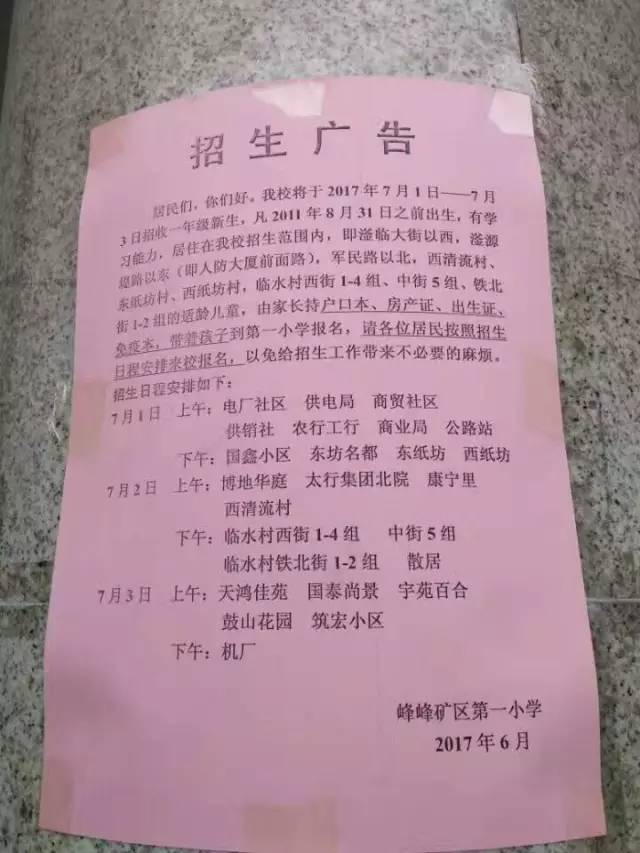 招生广告
居民们，你们好。我校将于 2017 年 7 月 1 日——7 月
3 日招收一年级新生，凡 2011 年 8 月 31 日之前出生，有学
习能力，居住在我校招生范围内，即滏临大街以西，滏源
堤路以东（即人防大厦前面路），军民路以北，西清流村、
东纸坊村、西纸坊村，临水村西街 1-4 组、中街 5 组、铁北
街 1-2 组的适龄儿童，由家长持户口本、房产证、出生证、
免疫本，带着孩子到第一小学报名，请各位居民按照招生
日程安排来校报名，以免给招生工作带来不必要的麻烦。
招生日程安排如下：
7 月 1 日 上午：电厂社区 供电局 商贸社区
供销社 农行工行 商业局 公路站
下午：国鑫小区 东坊名都 东纸坊 西纸坊
7 月 2 日 上午：博地华庭 太行集团北院 康宁里
西清流村
下午：临水村西街 1-4 组 中街 5 组
临水村铁北街 1-2 组 散居
7 月 3 日 上午：天鸿佳苑 国泰尚景 宇苑百合
鼓山花园 筑宏小区
下午：机厂
峰峰矿区第一小学
2017 年 6 月